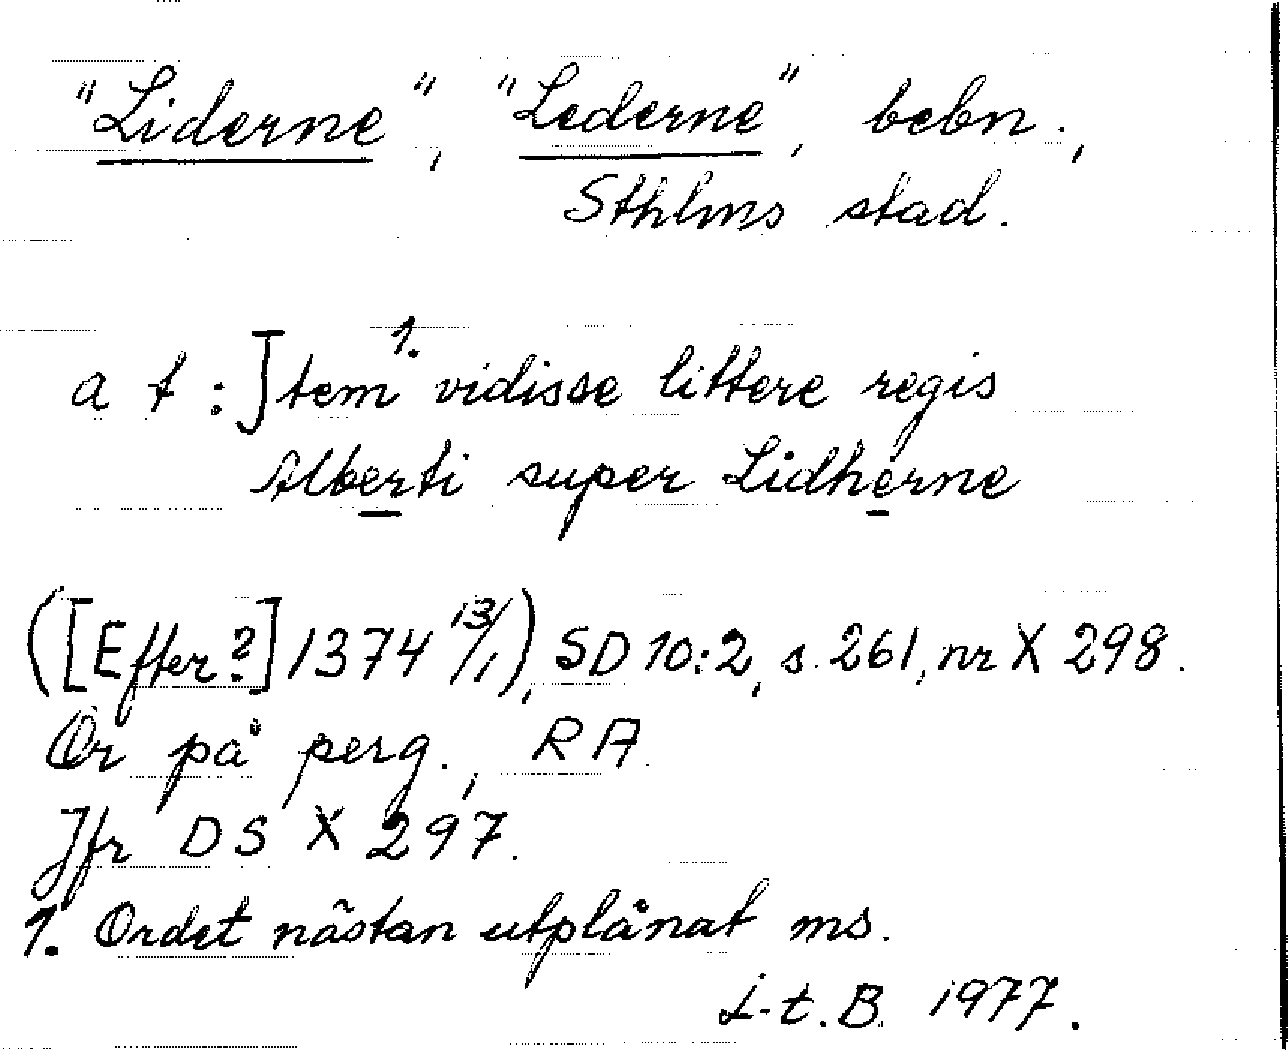 "Liderne", "Lederne", bebn.,
Sthlms stad.
a t : Jtem 1. vidisse littere regis
Alberti super Lidherne
([Efter?] 1374 13/1), SD 10:2, s. 261, nr X 298.
Or på perg., RA.
Jfr DS X 297.
1. Ordet nästan utplånat ms.
L-t. B. 1977.